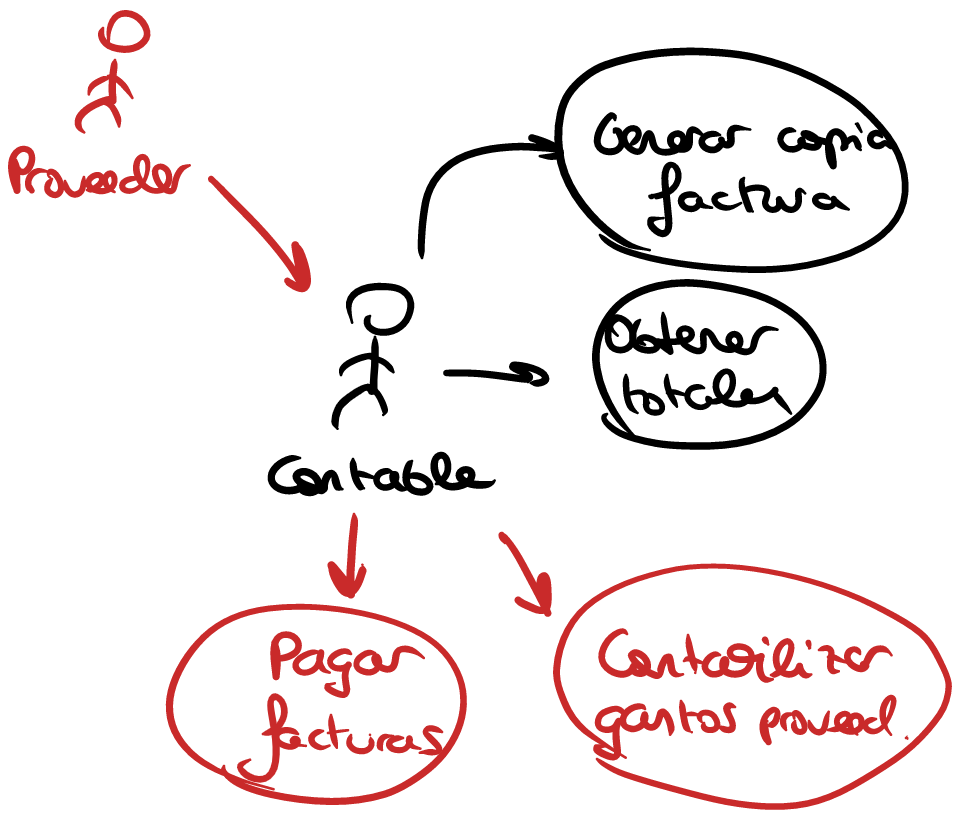 Proveedor
Generar copia
factura
Obtener
totales
Contable
Pagar
facturas
Contabilizar
gastos proveed.